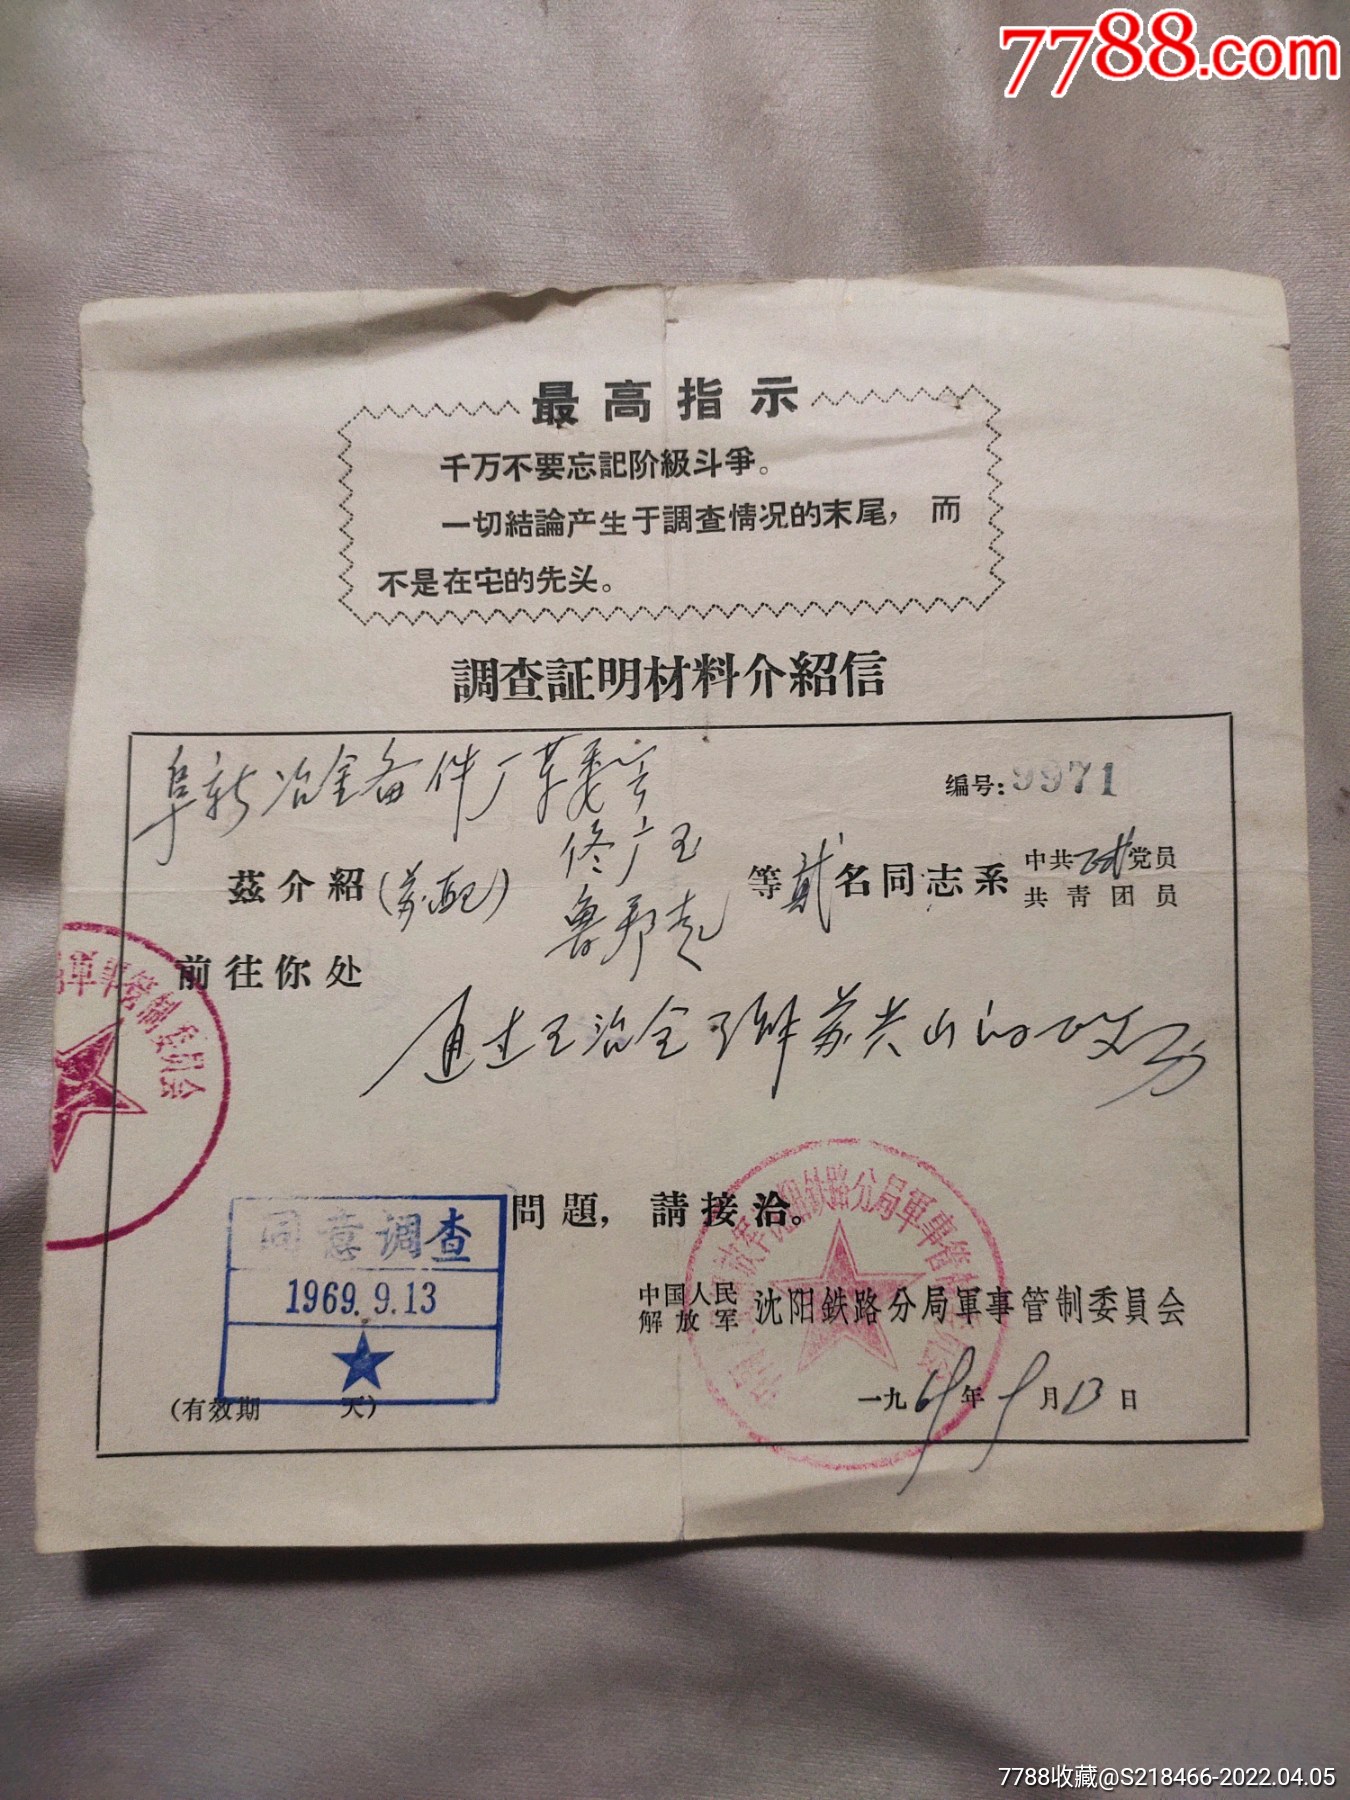 7788.com
最高指示
千万不要忘記阶級斗爭。
一切結論产生于調查情况的末尾，而
不是在它的先头。
調查証明材料介紹信
阜新冶金备件厂革委会
编号:9971
兹介紹(苏配)佟广玉
鲁邦克
等贰名同志系中共正式党员
共靑团员
前往你处
通过王治全了解苏兴山的政历
問題，請接洽。
同意调查
1969.9.13
中国人民
解放军
沈阳鉄路分局軍事管制委員会
(有效期 天)
一九69年9月13日
7788收藏@S218466-2022.04.05